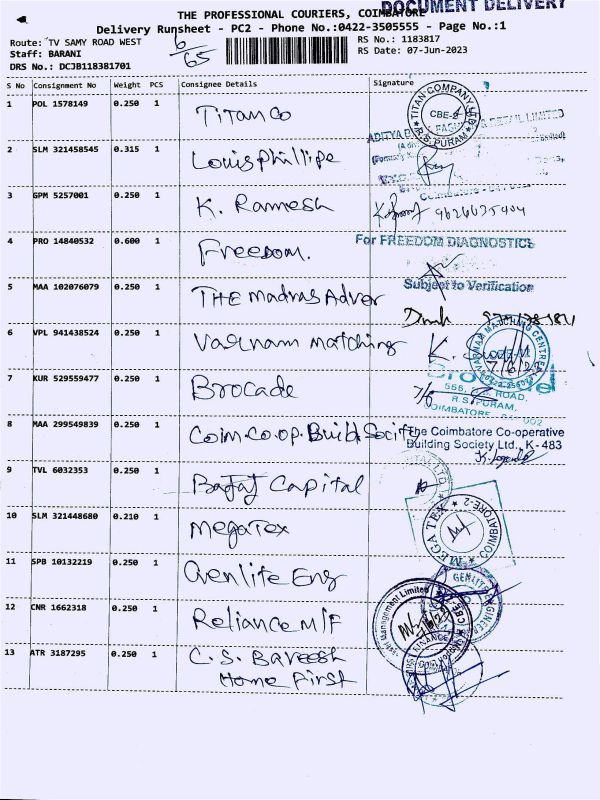 DOCUMENT DELIVERY
THE PROFESSIONAL COURIERS, COIMBATORE
Delivery Runsheet - PC2 - Phone No.:0422-3505555 - Page No.:1
Route: TV SAMY ROAD WEST 6/65 RS No.: 1183817
Staff: BARANI RS Date: 07-Jun-2023
DRS No.: DCJB118381701
S No Consignment No Weight PCS Consignee Details Signature
1 POL 1578149 0.250 1 Titan Co
TITAN COMPANY LTD
CBE-2
R.S. PURAM
2 SLM 321458545 0.315 1 Louis Phillipe
3 GPM 5257001 0.250 1 K. Ramesh 9626635404
4 PRO 14840532 0.600 1 Freedom.
For FREEDOM DIAGNOSTICS
Subject to Verification
5 MAA 102076079 0.250 1 THE Madras Adver
6 VPL 941438524 0.250 1 Varnam matching
VARNAM MATCHING CENTRE
7/6/23
7 KUR 529559477 0.250 1 Brocade 7/6
ROAD,
R.S. PURAM,
COIMBATORE
8 MAA 299549839 0.250 1 Coim.Co.op.Build.Socity
The Coimbatore Co-operative
Building Society Ltd., K-483
9 TVL 6032353 0.250 1 Bajaj Capital
10 SLM 321448680 0.210 1 MegaTex
MEGA TEX
COIMBATORE-2
11 SPB 10132219 0.250 1 Genlite Eng
12 CNR 1662318 0.250 1 Reliance M/F
13 ATR 3187295 0.250 1 C.S. Bareesh
Home First